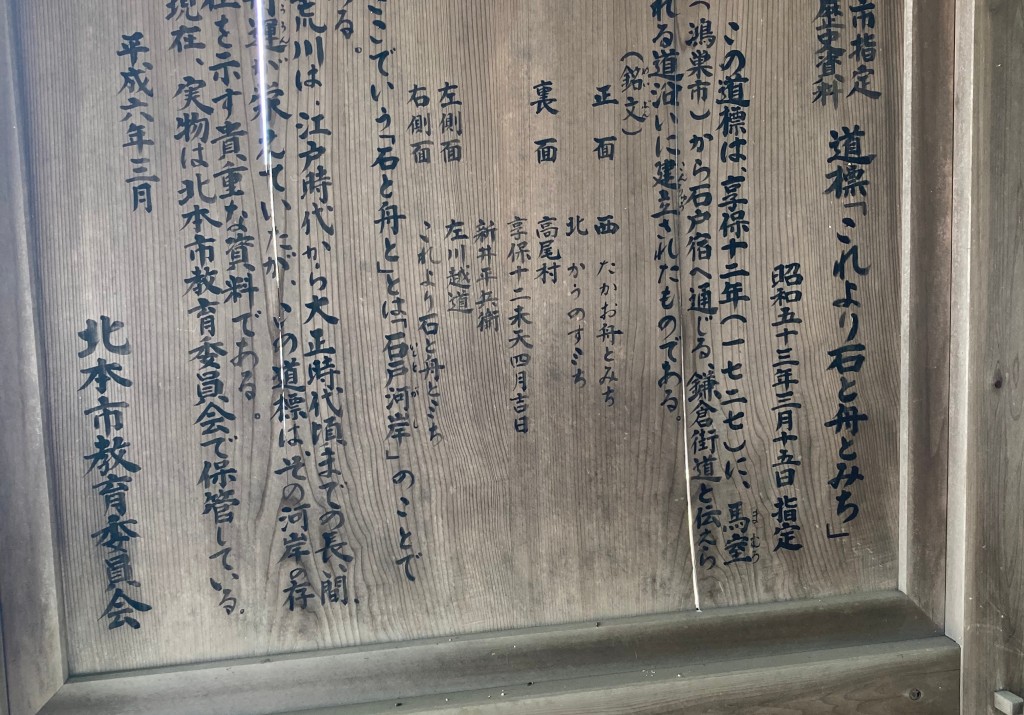 市指定
歴史資料
道標「これより石と舟とみち」
昭和五十三年三月十五日 指定
この道標は、享保十二年(一七二七)に、馬室
(鴻巣市)から石戸宿へ通じる、鎌倉街道と伝えら
れる道沿いに建立されたものである。
(銘文)
正面 西 たかお舟とみち
北 かうのすミち
裏面 高尾村
享保十二未天四月吉日
新井平兵衛
左側面 左川越道
右側面 これより石と舟とミち
ここでいう「石と舟と」とは「石戸河岸」のことで
る。
荒川は、江戸時代から大正時代頃までの長い間、
運が栄えていたが、この道標は、その河岸の存
在を示す貴重な資料である。
現在、実物は北本市教育委員会で保管している。
平成六年三月
北本市教育委員会